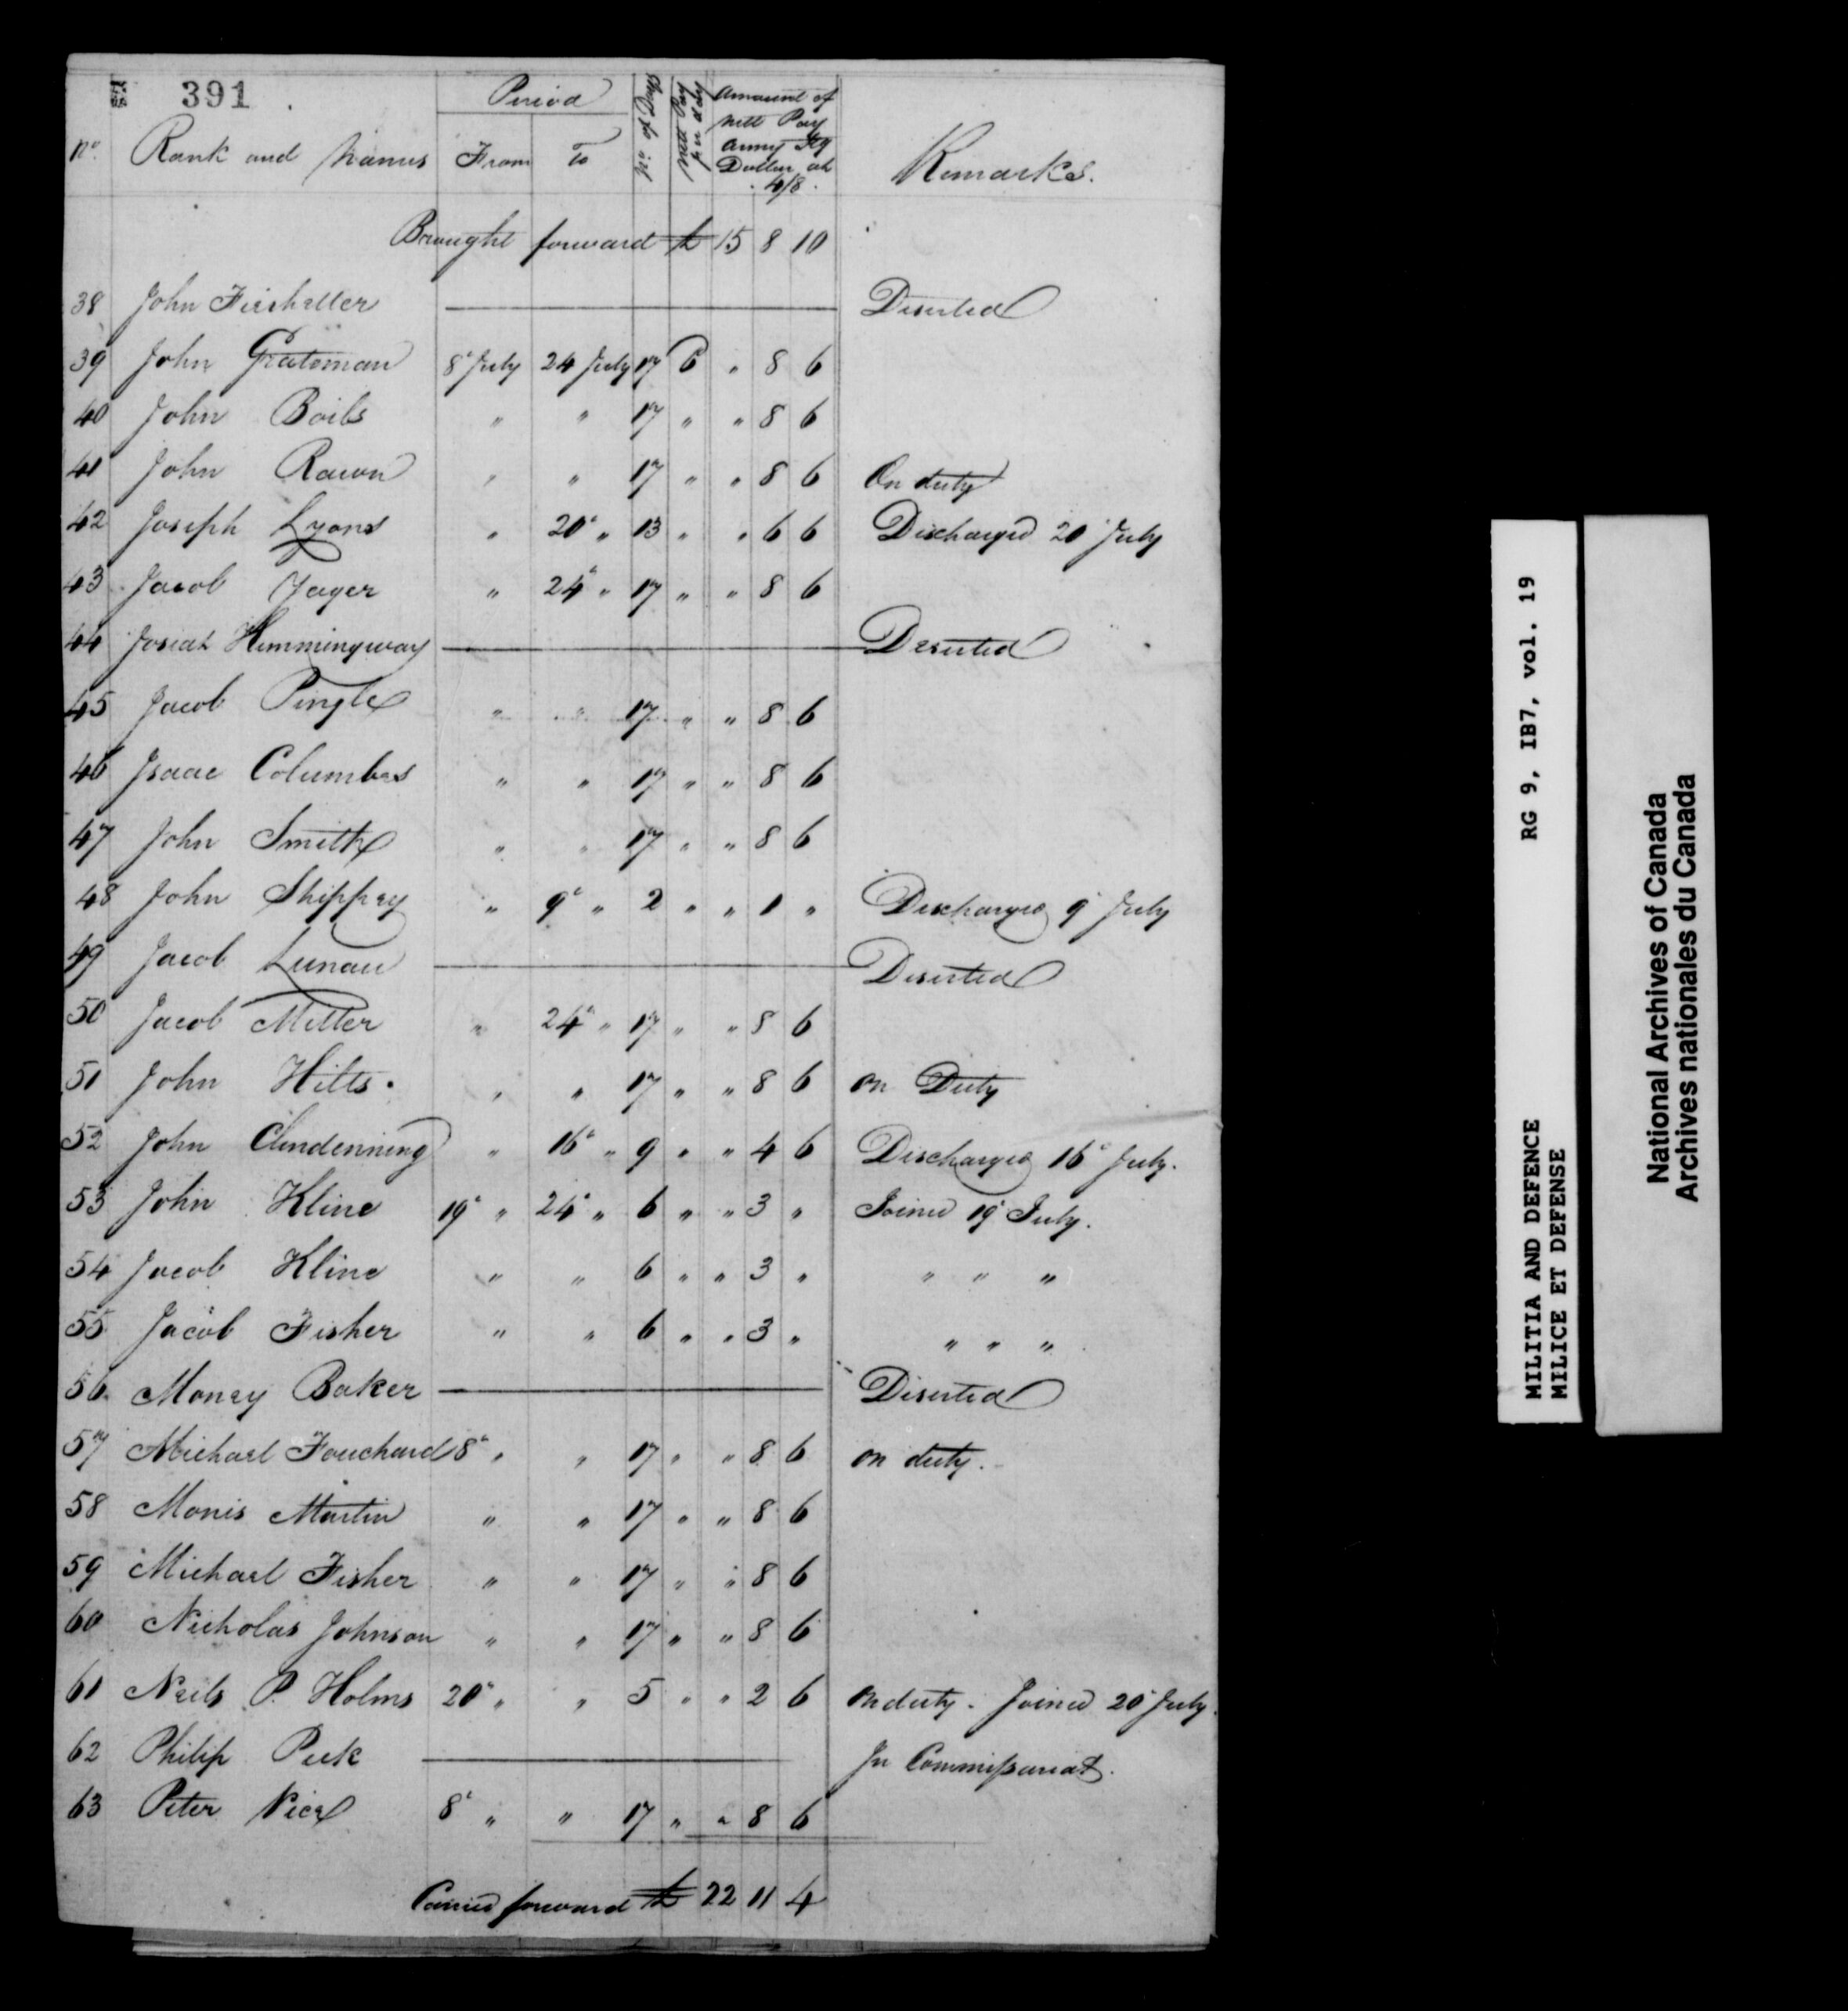 391
No. Rank and Names Period From To No. of Days Nett Pay per day Amount of Nett Pay Army Stg Dollar at 4/8 Remarks.
Brought forward £ 15 8 10
38 John Fierheller Deserted
39 John Grateman 8th July 24 July 17 6 " 8 6
40 John Boils " " 17 " " 8 6
41 John Rawn " " 17 " " 8 6 On duty
42 Joseph Lyons " 20th " 13 " " 6 6 Discharged 20 July
43 Jacob Yager " 24th " 17 " " 8 6
44 Josiah Hemmingway Deserted
45 Jacob Pingle " " 17 " " 8 6
46 Isaac Columbus " " 17 " " 8 6
47 John Smith " " 17 " " 8 6
48 John Shippey " 9th " 2 " " 1 " Discharged 9th July
49 Jacob Lunau Deserted
50 Jacob Miller " 24th " 17 " " 8 6
51 John Hilts. " " 17 " " 8 6 on Duty
52 John Clendenning " 16th " 9 " " 4 6 Discharged 16th July.
53 John Kline 19th " 24th " 6 " " 3 " Joined 19th July.
54 Jacob Kline " " 6 " " 3 " " " "
55 Jacob Fisher " " 6 " " 3 " " " "
56 Money Baker Deserted
57 Michael Fouchard 8th " " 17 " " 8 6 on duty.
58 Monis Martin " " 17 " " 8 6
59 Michael Fisher " " 17 " " 8 6
60 Nicholas Johnson " " 17 " " 8 6
61 Neils P. Holms 20th " " 5 " " 2 6 on duty. Joined 20th July.
62 Philip Peek In Commissariat.
63 Peter Nice 8th " " 17 " " 8 6
Carried forward £ 22 11 4
MILITIA AND DEFENCE RG 9, IB7, vol. 19
MILICE ET DEFENSE
National Archives of Canada
Archives nationales du Canada